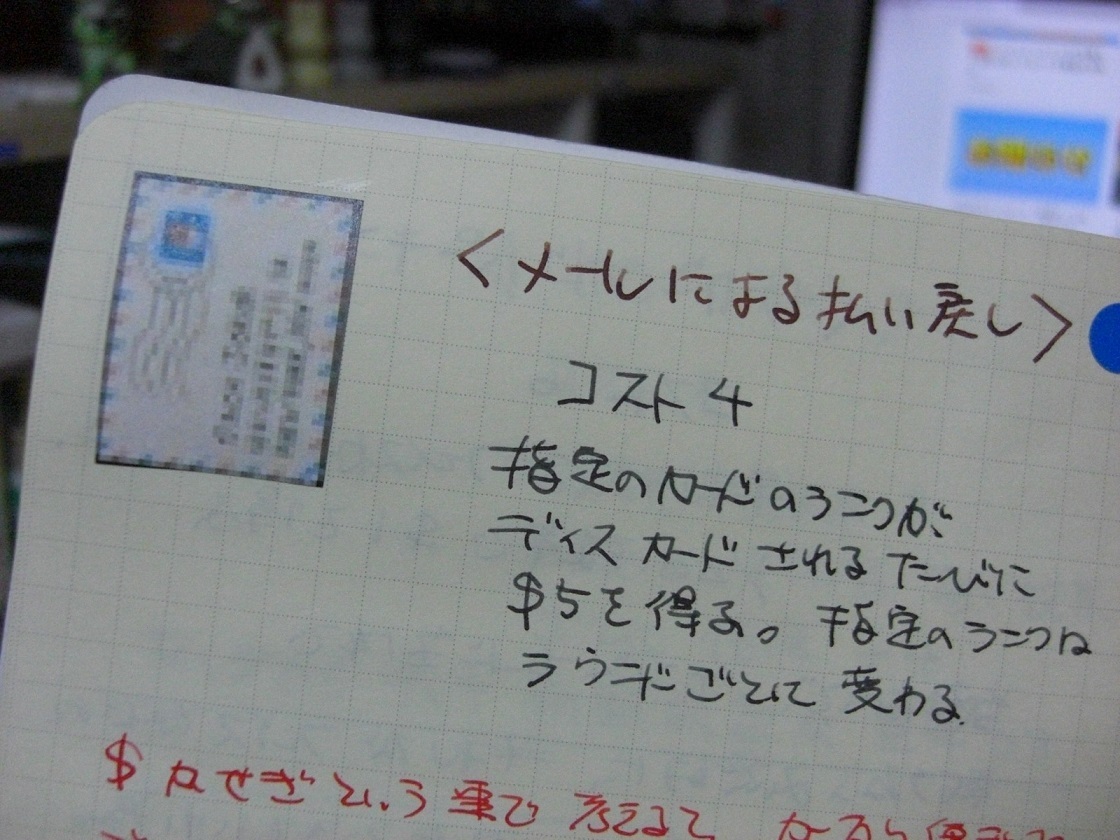 <メールによる払い戻し>
コスト4
指定のカードのランクが
ディスカードされるたびに
$5を得る。指定のランクは
ラウンドごとに変わる。
$かせぎという事で考えると